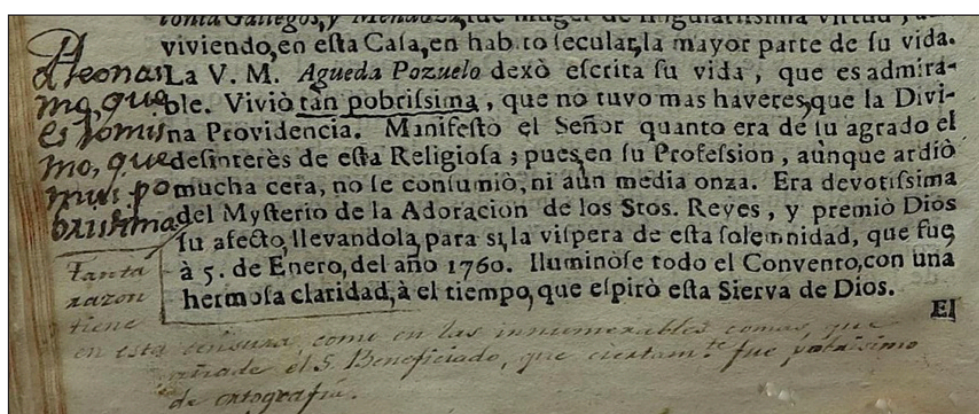 Gallegos, y Mendoza, fue muger de ſingulariſſima virtud;
viviendo, en eſta Caſa, en habito ſecular, la mayor parte de ſu vida.
La V. M. Agueda Pozuelo dexò eſcrita ſu vida, que es admira-
ble. Viviò tan pobriſſima, que no tuvo mas haveres, que la Divi-
na Providencia. Manifeſtò el Señor quanto era de ſu agrado el
deſinterès de eſta Religioſa; pues, en ſu Profeſsion, aunque ardiò
mucha cera, no ſe conſumiò, ni aun media onza. Era devotiſſima
del Myſterio de la Adoracion de los Stos. Reyes, y premiò Dios
ſu afecto, llevandola, para sì, la viſpera de eſta ſolemnidad, que fue,
à 5. de Enero, del año 1760. Iluminòſe todo el Convento, con una
hermoſa claridad, à el tiempo, que eſpirò eſta Sierva de Dios.
El
Pleonas
mo, que
es lo mis
mo, que
mui po
brisima
Tanta
razon
tiene
en esta censura, como en las innumerables comas, que
añade el S. Beneficiado, que ciertam.te fue pobrisimo
de ortografia.